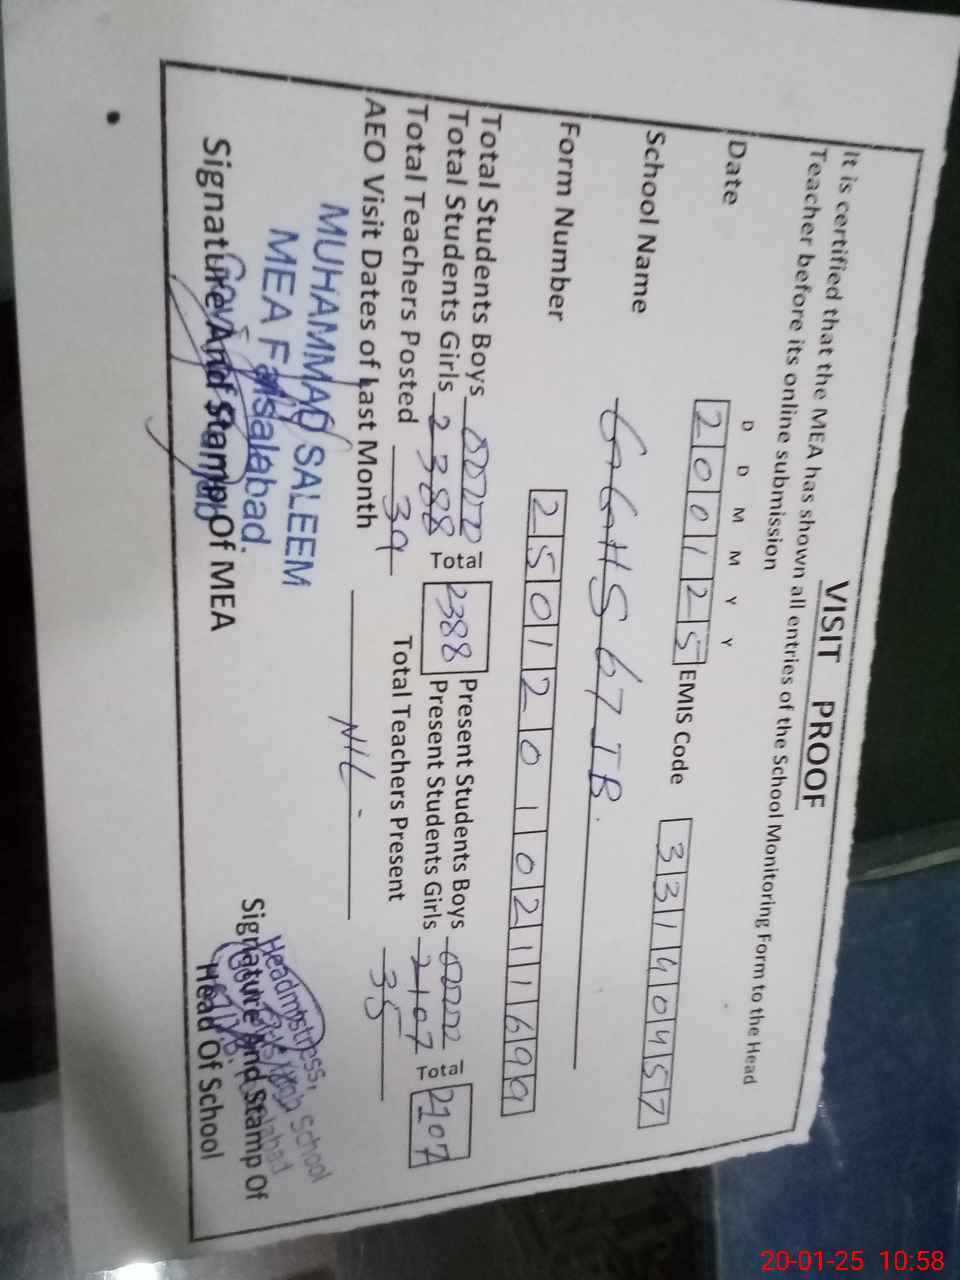 VISIT PROOF
It is certified that the MEA has shown all entries of the School Monitoring Form to the Head
Teacher before its online submission
D D M M Y Y
Date 200125 EMIS Code 33140457
School Name GGHS 67 JB.
Form Number 2501201021169 9
Total Students Boys 0000 Present Students Boys 0000
Total Students Girls 2388 Total 2388 Present Students Girls 2107 Total 2107
Total Teachers Posted 39 Total Teachers Present 35
AEO Visit Dates of Last Month NIL
MUHAMMAD SALEEM
MEA Faisalabad.
Signature And Stamp Of MEA
Headmistress,
Girls High School
Signature And Stamp Of
Head Of School
20-01-25 10:58